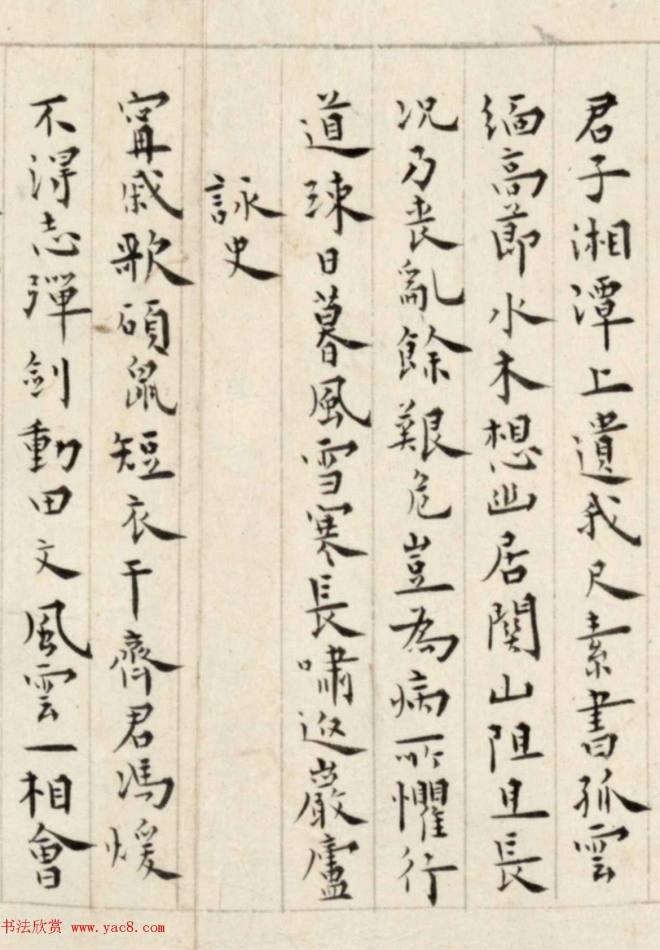 君子湘潭上遺我尺素書孤雲
緬高節水木想幽居關山阻且長
况乃丧亂餘艱危豈為病所懼行
道疎日暮風雪寒長嘯返巖廬
詠史
甯戚歌碩鼠短衣干齊君馮煖
不得志彈劍動田文風雲一相會
书法欣赏 www.yac8.com